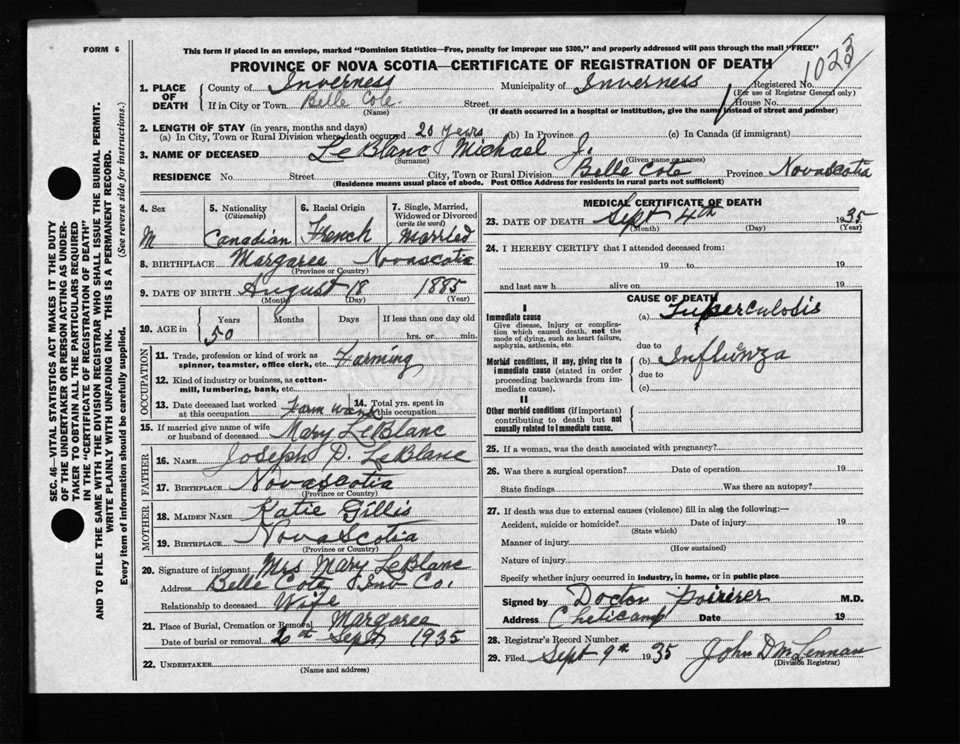 FORM 6
This form if placed in an envelope, marked "Dominion Statistics—Free, penalty for improper use $300," and properly addressed will pass through the mail "FREE"
PROVINCE OF NOVA SCOTIA—CERTIFICATE OF REGISTRATION OF DEATH
1023
1. PLACE OF DEATH
County of Inverness Municipality of Inverness Registered No.
(For use of Registrar General only)
If in City or Town Belle Cote. Street House No.
(Name) (If death occurred in a hospital or institution, give the name instead of street and number)
2. LENGTH OF STAY (in years, months and days)
(a) In City, Town or Rural Division where death occurred 20 years (b) In Province (c) In Canada (if immigrant)
3. NAME OF DECEASED LeBlanc Michael J.
(Surname) (Given name or names)
RESIDENCE No. Street City, Town or Rural Division Belle Cote Province Novascotia
(Residence means usual place of abode. Post Office Address for residents in rural parts not sufficient)
4. Sex M
5. Nationality (Citizenship) Canadian
6. Racial Origin French
7. Single, Married, Widowed or Divorced (write the word) Married
8. BIRTHPLACE Margaree Novascotia
(Province or Country)
9. DATE OF BIRTH August 18 1885
(Month) (Day) (Year)
10. AGE in Years Months Days If less than one day old
50 hrs. or min.
OCCUPATION
11. Trade, profession or kind of work as spinner, teamster, office clerk, etc. Farming
12. Kind of industry or business, as cotton-mill, lumbering, bank, etc.
13. Date deceased last worked at this occupation Farm
14. Total yrs. spent in this occupation
15. If married give name of wife or husband of deceased Mary LeBlanc
FATHER
16. NAME Joseph P. LeBlanc
17. BIRTHPLACE Novascotia
(Province or Country)
MOTHER
18. MAIDEN NAME Katie Gillis
19. BIRTHPLACE Nova Scotia
(Province or Country)
20. Signature of informant Mrs Mary LeBlanc
Address Belle Cote Inv Co.
Relationship to deceased Wife
21. Place of Burial, Cremation or Removal Margaree
Date of burial or removal 6th Sept 1935
22. UNDERTAKER
(Name and address)
MEDICAL CERTIFICATE OF DEATH
23. DATE OF DEATH Sept 4th 1935
(Month) (Day) (Year)
24. I HEREBY CERTIFY that I attended deceased from:
19 to 19
and last saw h alive on 19
CAUSE OF DEATH
I
Immediate cause (a) Tuberculosis
Give disease, injury or complication which caused death, not the mode of dying, such as heart failure, asphyxia, asthenia, etc.
due to
Morbid conditions, if any, giving rise to immediate cause (stated in order proceeding backwards from immediate cause).
(b) Influnza
due to
(c)
II
Other morbid conditions (if important) contributing to death but not causally related to immediate cause.
25. If a woman, was the death associated with pregnancy?
26. Was there a surgical operation? Date of operation 19
State findings Was there an autopsy?
27. If death was due to external causes (violence) fill in also the following:—
Accident, suicide or homicide? Date of injury 19
(State which)
Manner of injury
(How sustained)
Nature of injury
Specify whether injury occurred in industry, in home, or in public place
Signed by Doctor M.D.
Address Cheticamp Date 19
28. Registrar's Record Number
29. Filed Sept 9th 1935 John D McLennan
(Division Registrar)
SEC. 46—VITAL STATISTICS ACT MAKES IT THE DUTY
OF THE UNDERTAKER OR PERSON ACTING AS UNDER-
TAKER TO OBTAIN ALL THE PARTICULARS REQUIRED
IN THE "CERTIFICATE OF REGISTRATION OF DEATH"
AND TO FILE THE SAME WITH THE DIVISION REGISTRAR WHO SHALL ISSUE THE BURIAL PERMIT.
WRITE PLAINLY WITH UNFADING INK. THIS IS A PERMANENT RECORD.
Every item of information should be carefully supplied. (See reverse side for instructions.)